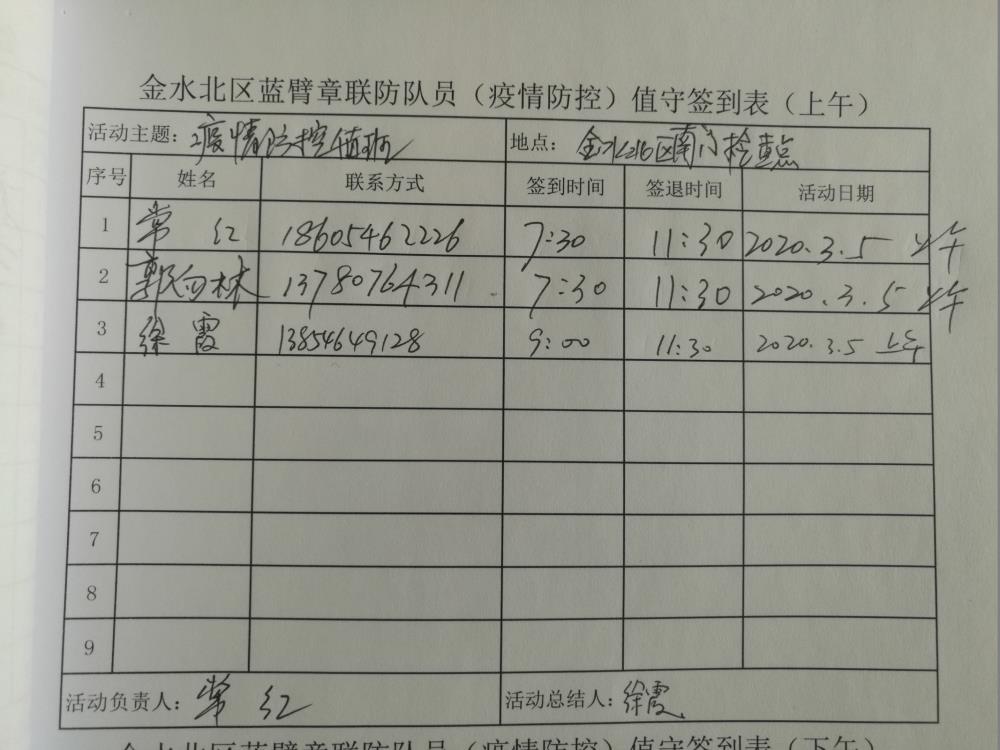 金水北区蓝臂章联防队员（疫情防控）值守签到表（上午）
活动主题：疫情防控值班 地点：金水北区南门检查点
序号 姓名 联系方式 签到时间 签退时间 活动日期
1 常红 18605462226 7:30 11:30 2020.3.5 上午
2 郭向林 13780764311 7:30 11:30 2020.3.5 上午
3 徐霞 13854649128 9:00 11:30 2020.3.5 上午
4
5
6
7
8
9
活动负责人：常红 活动总结人：徐霞
金水北区蓝臂章联防队员（疫情防控）值守签到表（下午）